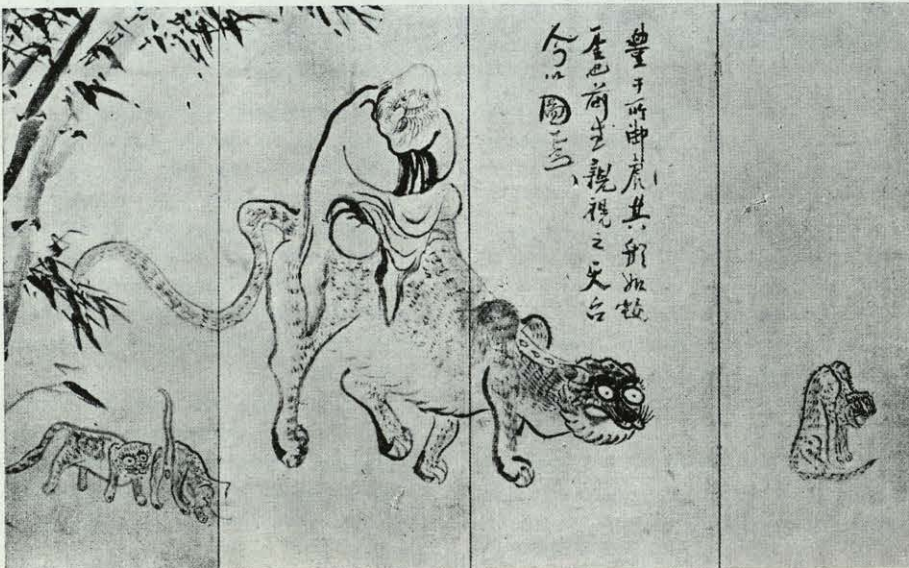 豊干所御虎其形如
也前生親視之天台
今以圖